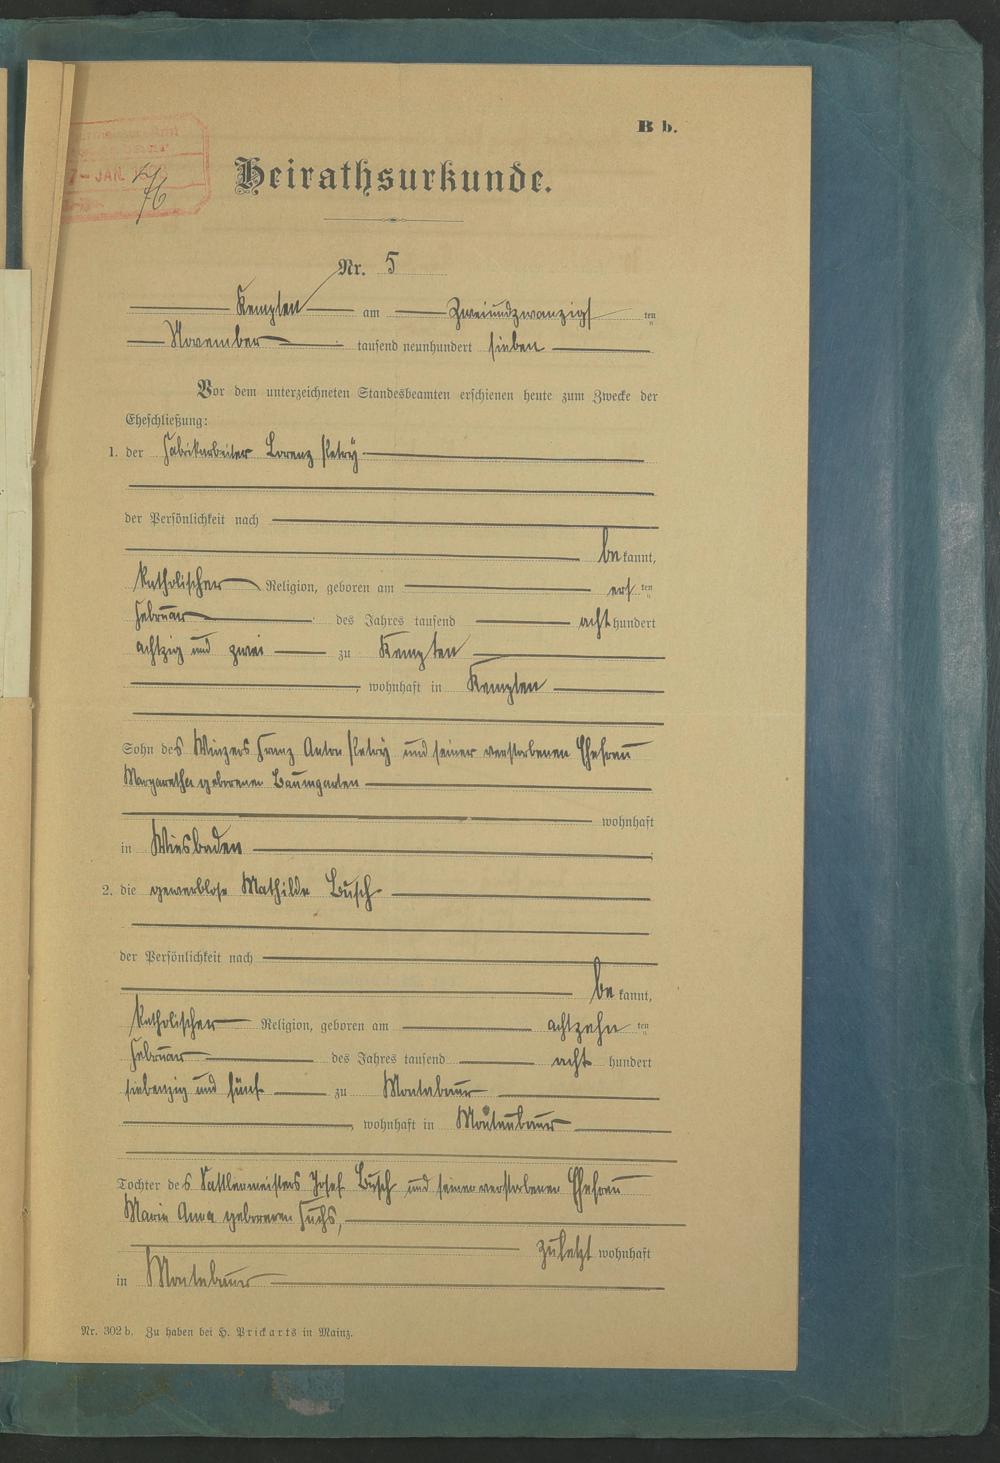 B b.
7- JAN.
76
Heirathsurkunde.
Nr. 5
Kempten am Zweiundzwanzigsten
November tausend neunhundert sieben
Vor dem unterzeichneten Standesbeamten erschienen heute zum Zwecke der
Eheschließung:
1. der Fabrikarbeiter Lorenz Petry
der Persönlichkeit nach
bekannt,
katholischer Religion, geboren am ersten
Februar des Jahres tausend achthundert
achtzig und zwei zu Kempten
, wohnhaft in Kempten
Sohn des Winzers Franz Anton Petry und seiner verstorbenen Ehefrau
Margaretha geborenen Baumgarten
wohnhaft
in Wiesbaden
2. die gewerblose Mathilde Busch
der Persönlichkeit nach
bekannt,
katholischer Religion, geboren am achtzehnten
Februar des Jahres tausend acht hundert
siebenzig und fünf zu Montabaur
, wohnhaft in Montabaur
Tochter des Sattlermeisters Josef Busch und seiner verstorbenen Ehefrau
Maria Anna geborenen Fuchs,
zuletzt wohnhaft
in Montabaur
Nr. 302 b. Zu haben bei H. Prickarts in Mainz.